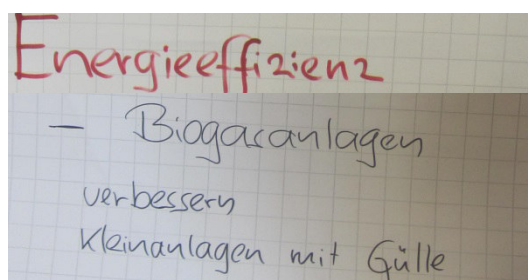 Energieeffizienz
– Biogasanlagen
verbessern
Kleinanlagen mit Gülle